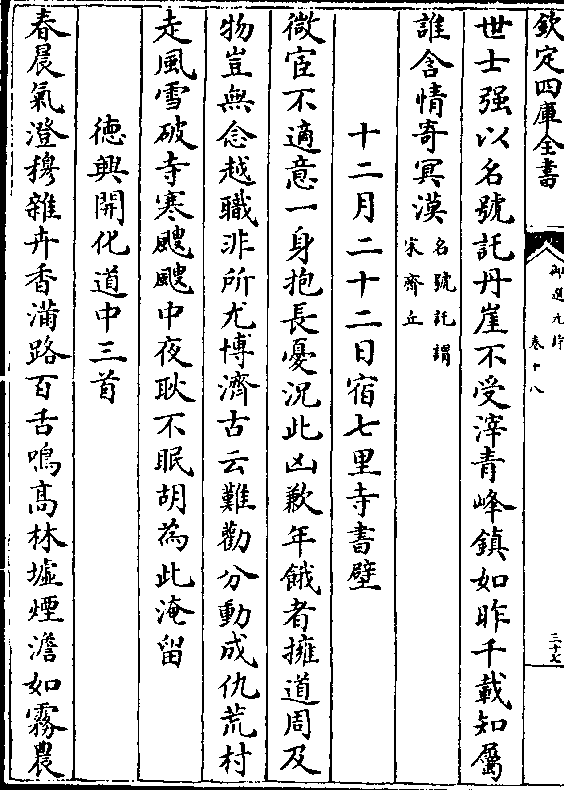 欽定四庫全書
御選元詩
卷十八
三十七
世士强以名號託丹崖不受滓青峰鎮如昨千載知屬
誰含情寄冥漠名號託謂
宋齊丘
十二月二十二日宿七里寺書壁
微宦不適意一身抱長憂況此凶歉年餓者擁道周及
物豈無念越職非所尤博濟古云難勸分動成仇荒村
走風雪破寺寒颼颼中夜耿不眠胡為此淹留
德興開化道中三首
春晨氣澄穆雜卉香滿路百舌鳴髙林墟煙澹如霧農